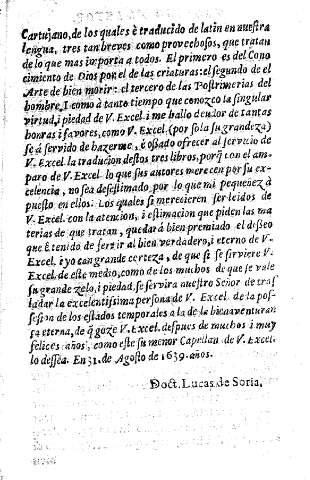 Cartujano, de los quales è traducido de latin en nuestra
lengua, tres tan breves como provechosos, que tratan
de lo que mas importa a todos. El primero es del Cono
cimiento de Dios por el de las criaturas: el segundo de el
Arte de bien morir: el tercero de las Postrimerias del
hombre. I como à tanto tiempo que conozco la singular
virtud, i piedad de V. Excel. i me hallo deudor de tantas
honras i favores, como V. Excel. (por sola su grandeza)
se á servido de hazerme, è osado ofrecer al servicio de
V. Excel. la traducion destos tres libros, porq̃ con el am-
paro de V. Excel. lo que sus autores merecen por su ex-
celencia, no sea desestimado por lo que mi pequeñez à
puesto en ellos. Los quales si merecieren ser leidos de
V. Excel. con la atencion, i estimacion que piden las ma
terias de que tratan, quedarà bien premiado el desseo
que è tenido de servir al bien verdadero, i eterno de V.
Excel. i yo con grande certeza, de que si se sirviere V.
Excel. de este medio, como de los muchos de que se vale
su grande zelo, i piedad, se servira nuestro Señor de tras
ladar la excelentissima persona de V. Excel. de la pos-
session de los estados temporales a la de la bienaventuran
ça eterna, de q̃ goze V. Excel. despues de muchos i muy
felices años, como este su menor Capellan de V. Excel.
lo dessea. En 31. de Agosto de 1639. años.
Doct. Lucas de Soria.